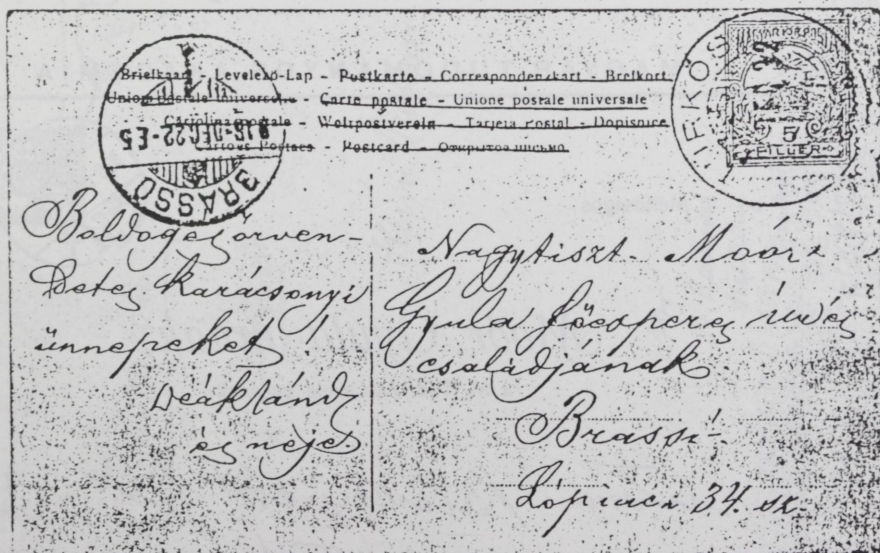 Briefkaart - Levelező-Lap - Postkarte - Correspondenzkart - Brefkort
Union postale universelle - Carte postale - Unione postale universale
postale - Weltpostverein - Tarjeta postal - Dopisnice
Postaes - Postcard - Открытое письмо
BRASSÓ
916-DEC.22-E5
TÜRKÖS
MAGYAR KIR. POSTA
5
FILLÉR
Boldog és örven-
detes karácsonyi
ünnepeket!
Deák
és neje
Nagytiszt. Moór
Gyula főesperes úr és
családjának
Brassó
34. sz.